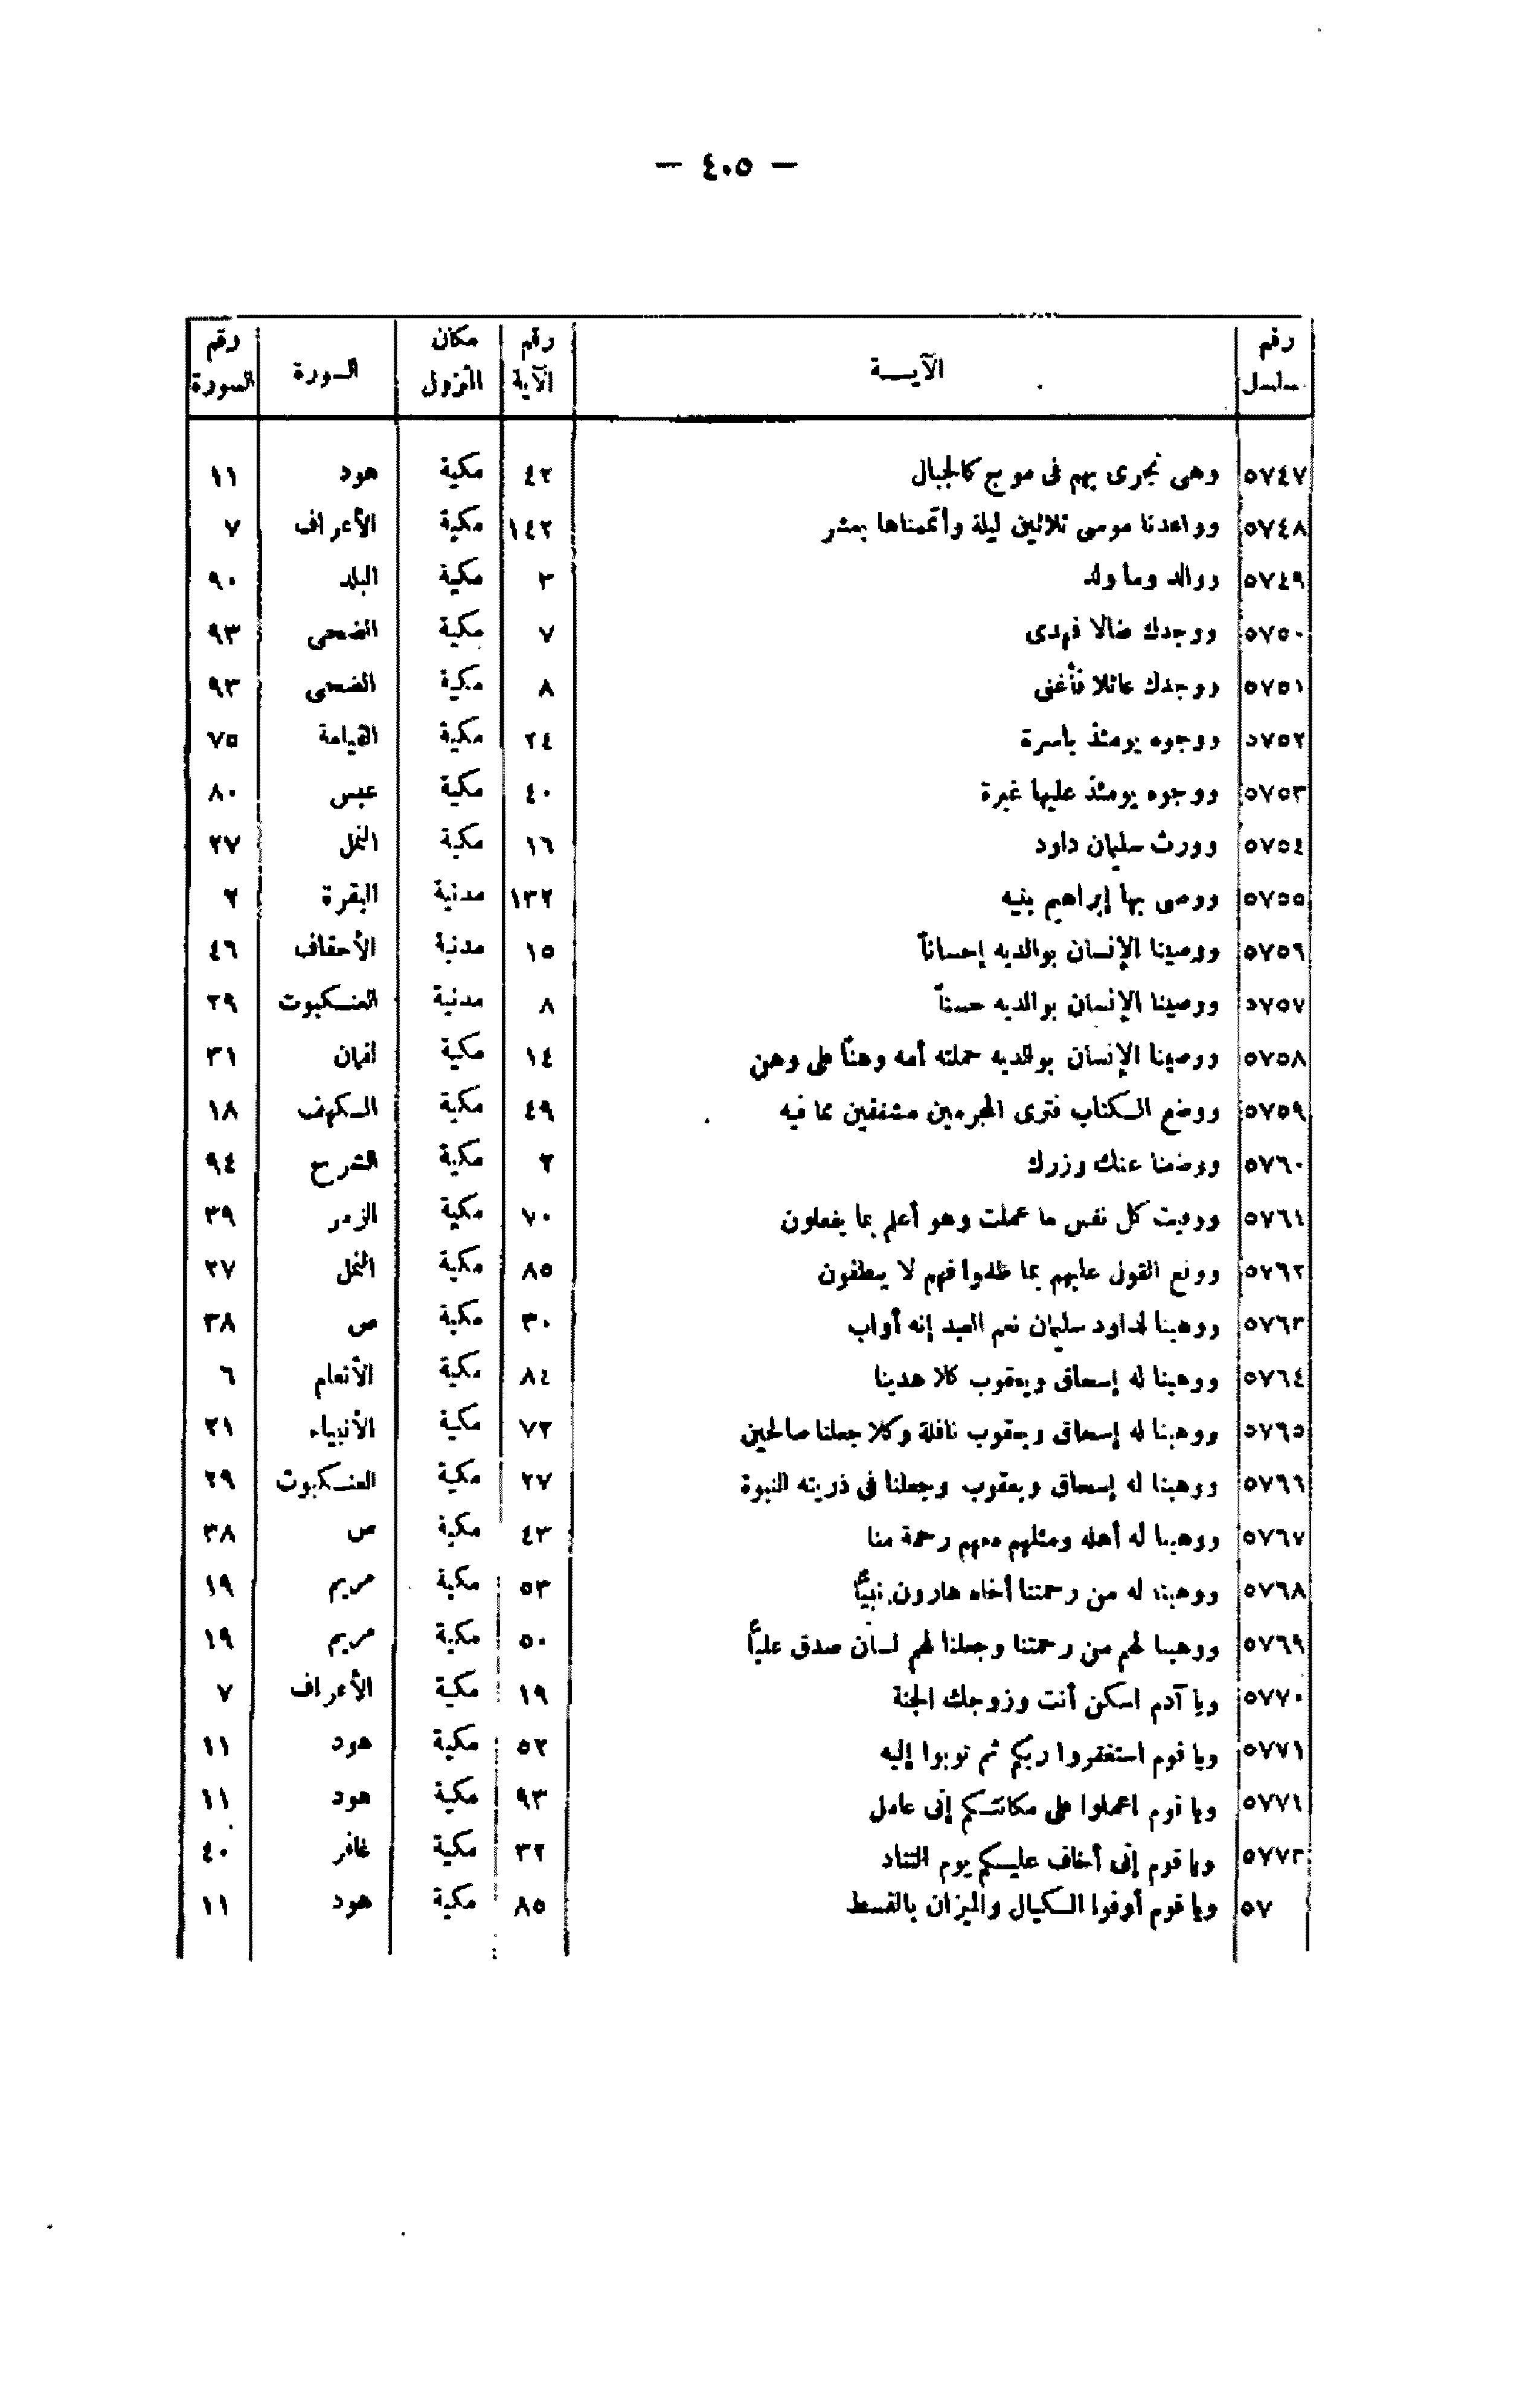 — ٤٠٥ —
رقم مسلسل | الآيـــة | رقم الآية | مكان النزول | السورة | رقم السورة
٥٧٤٧ | وهى تجرى بهم فى موج كالجبال | ٤٢ | مكية | هود | ١١
٥٧٤٨ | وواعدنا موسى ثلاثين ليلة وأتممناها بعشر | ١٤٢ | مكية | الأعراف | ٧
٥٧٤٩ | ووالد وما ولد | ٣ | مكية | البلد | ٩٠
٥٧٥٠ | ووجدك ضالا فهدى | ٧ | مكية | الضحى | ٩٣
٥٧٥١ | ووجدك عائلا فأغنى | ٨ | مكية | الضحى | ٩٣
٥٧٥٢ | ووجوه يومئذ باسرة | ٢٤ | مكية | القيامة | ٧٥
٥٧٥٣ | ووجوه يومئذ عليها غبرة | ٤٠ | مكية | عبس | ٨٠
٥٧٥٤ | وورث سليمان داود | ١٦ | مكية | النمل | ٢٧
٥٧٥٥ | ووصى بها إبراهيم بنيه | ١٣٢ | مدنية | البقرة | ٢
٥٧٥٦ | ووصينا الإنسان بوالديه إحساناً | ١٥ | مدنية | الأحقاف | ٤٦
٥٧٥٧ | ووصينا الإنسان بوالديه حسناً | ٨ | مدنية | العنكبوت | ٢٩
٥٧٥٨ | ووصينا الإنسان بوالديه حملته أمه وهناً على وهن | ١٤ | مكية | لقمان | ٣١
٥٧٥٩ | ووضع الكتاب فترى المجرمين مشفقين مما فيه | ٤٩ | مكية | الكهف | ١٨
٥٧٦٠ | ووضعنا عنك وزرك | ٢ | مكية | الشرح | ٩٤
٥٧٦١ | ووفيت كل نفس ما عملت وهو أعلم بما يفعلون | ٧٠ | مكية | الزمر | ٣٩
٥٧٦٢ | ووقع القول عليهم بما ظلموا فهم لا ينطقون | ٨٥ | مكية | النمل | ٢٧
٥٧٦٣ | ووهبنا لداود سليمان نعم العبد إنه أواب | ٣٠ | مكية | ص | ٣٨
٥٧٦٤ | ووهبنا له إسحاق ويعقوب كلا هدينا | ٨٤ | مكية | الأنعام | ٦
٥٧٦٥ | ووهبنا له إسحاق ويعقوب نافلة وكلا جعلنا صالحين | ٧٢ | مكية | الأنبياء | ٢١
٥٧٦٦ | ووهبنا له إسحاق ويعقوب وجعلنا فى ذريته النبوة | ٢٧ | مكية | العنكبوت | ٢٩
٥٧٦٧ | ووهبنا له أهله ومثلهم معهم رحمة منا | ٤٣ | مكية | ص | ٣٨
٥٧٦٨ | ووهبنا له من رحمتنا أخاه هارون نبيًّا | ٥٣ | مكية | مريم | ١٩
٥٧٦٩ | ووهبنا لهم من رحمتنا وجعلنا لهم لسان صدق عليًّا | ٥٠ | مكية | مريم | ١٩
٥٧٧٠ | ويا آدم اسكن أنت وزوجك الجنة | ١٩ | مكية | الأعراف | ٧
٥٧٧١ | ويا قوم استغفروا ربكم ثم توبوا إليه | ٥٢ | مكية | هود | ١١
٥٧٧١ | ويا قوم اعملوا على مكانتكم إنى عامل | ٩٣ | مكية | هود | ١١
٥٧٧٣ | ويا قوم إنى أخاف عليكم يوم التناد | ٣٢ | مكية | غافر | ٤٠
٥٧ | ويا قوم أوفوا المكيال والميزان بالقسط | ٨٥ | مكية | هود | ١١